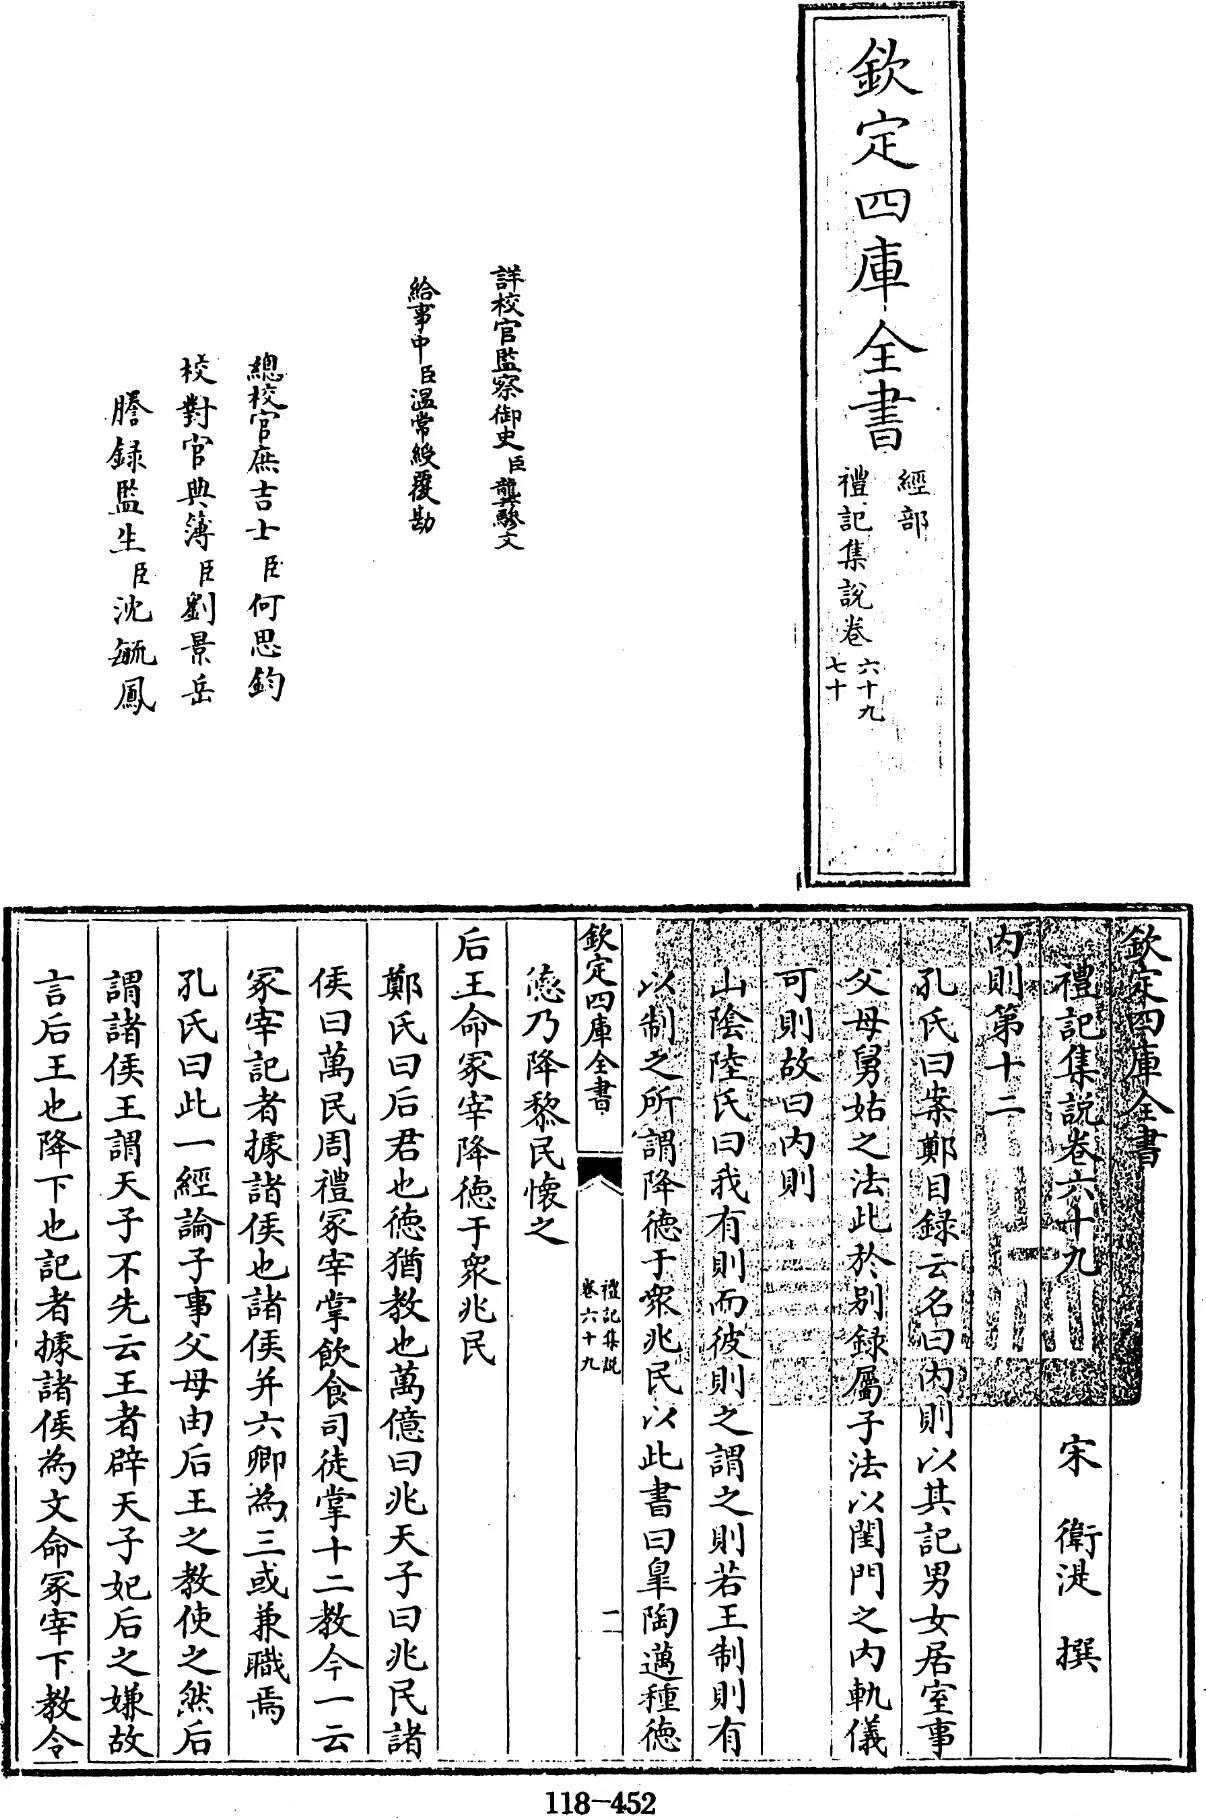 欽定四庫全書
經部
禮記集說卷
六十九
七十
詳校官監察御史臣龔驂文
給事中臣温常綬覆勘
總校官庶吉士臣何思鈞
校對官典簿臣劉景岳
謄録監生臣沈毓鳳
欽定四庫全書
禮記集說卷六十九
宋 衛湜 撰
内則第十二
孔氏曰案鄭目録云名曰内則以其記男女居室事
父母舅姑之法此於别録屬子法以閨門之内軌儀
可則故曰内則
山陰陸氏曰我有則而彼則之謂之則若王制則有
以制之所謂降德于衆兆民以此書曰臯陶邁種德
欽定四庫全書
禮記集說
卷六十九
一
德乃降黎民懷之
后王命冢宰降德于衆兆民
鄭氏曰后君也德猶教也萬億曰兆天子曰兆民諸
侯曰萬民周禮冢宰掌飲食司徒掌十二教今一云
冢宰記者據諸侯也諸侯并六卿為三或兼職焉
孔氏曰此一經論子事父母由后王之教使之然后
謂諸侯王謂天子不先云王者辟天子妃后之嫌故
言后王也降下也記者據諸侯為文命冢宰下教令
118-452